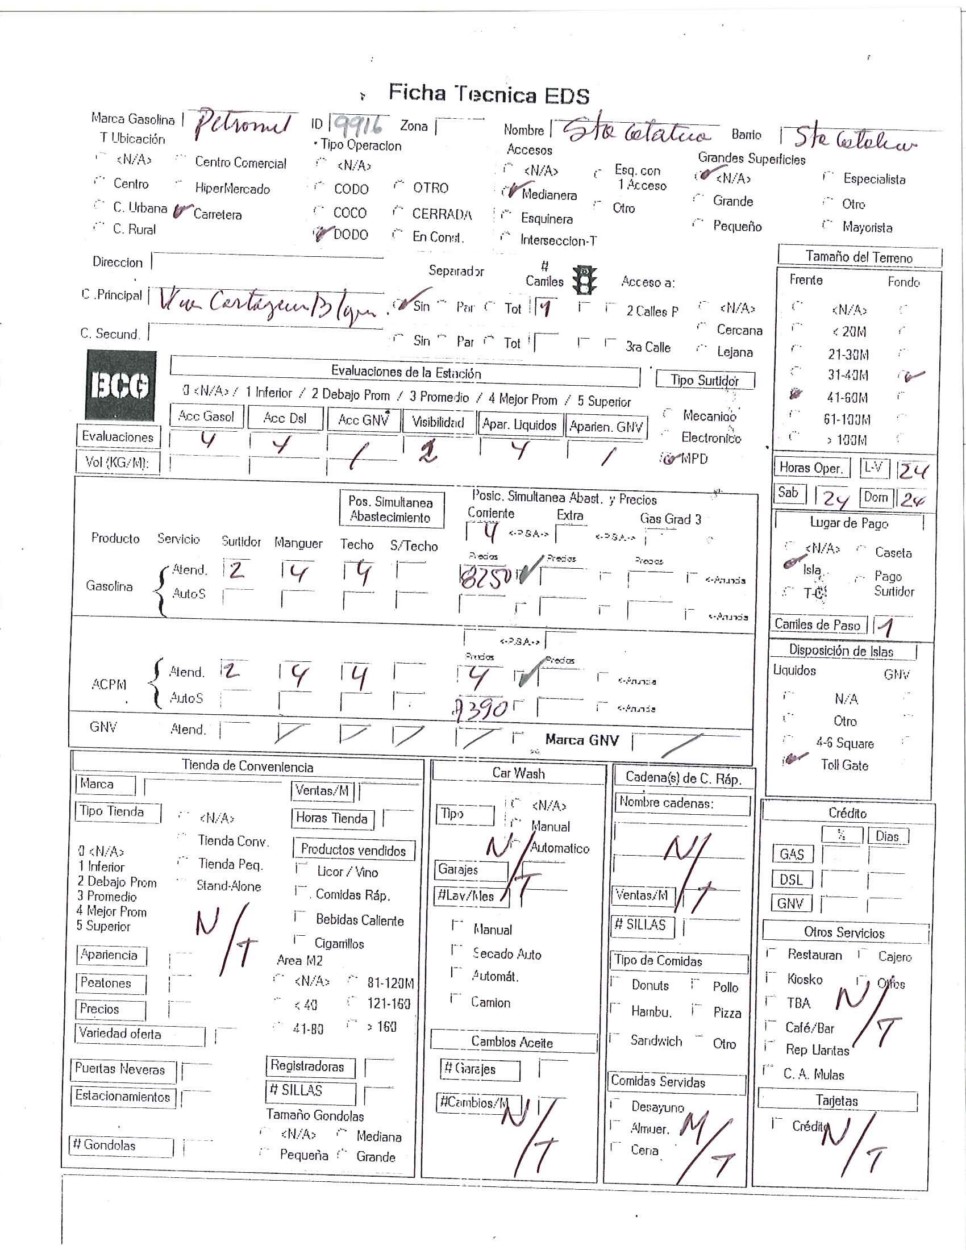 Ficha Tecnica EDS
Marca Gasolina Petromil ID 9916 Zona Nombre Sta Catalina Barrio Sta Catalina
T Ubicación Tipo Operacion Accesos Grandes Superficies
<N/A> Centro Comercial <N/A> <N/A> Esq. con 1 Acceso <N/A> Especialista
Centro HiperMercado CODO OTRO Medianera Otro Grande Otro
C. Urbana Carretera COCO CERRADA Esquinera Pequeño Mayorista
C. Rural DODO En Const. Interseccion-T
Tamaño del Terreno
Direccion Separador # Carriles Acceso a: Frente Fondo
C .Principal Via Cartagena B/qui. Sin Par Tot 1 2 Calles P <N/A>
Cercana
C. Secund. Sin Par Tot 3ra Calle Lejana
<N/A>
< 20M
21-30M
31-40M
41-60M
61-100M
> 100M
BCG
Evaluaciones de la Estación Tipo Surtidor
0 <N/A> / 1 Inferior / 2 Debajo Prom / 3 Promedio / 4 Mejor Prom / 5 Superior
Acc Gasol Acc Dsl Acc GNV Visibilidad Apar. Liquidos Aparien. GNV Mecanico
Electronico
Evaluaciones 4 4 / 2 4 / MPD
Vol (KG/M):
Horas Oper. L-V 24
Sab 24 Dom 24
Pos. Simultanea Abastecimiento Posic. Simultanea Abast. y Precios
Corriente Extra Gas Grad 3
4 <-P.S.A.-> <-P.S.A.->
Producto Servicio Surtidor Manguer Techo S/Techo Precios Precios Precios
Gasolina Atend. 2 4 4 8250 <-Anuncia
AutoS <-Anuncia
Lugar de Pago
<N/A> Caseta
Isla Pago Surtidor
T-C
Carriles de Paso 1
<-P.S.A.->
Precios Precios
ACPM Atend. 2 4 4 4 <-Anuncia
AutoS 7390 <-Anuncia
GNV Atend. / / / / Marca GNV /
Disposición de Islas
Liquidos GNV
N/A
Otro
4-6 Square
Toll Gate
Tienda de Conveniencia
Marca Ventas/M
Tipo Tienda <N/A> Horas Tienda
Tienda Conv.
0 <N/A> Tienda Peq. Productos vendidos
1 Inferior Stand-Alone Licor / Vino
2 Debajo Prom Comidas Ráp.
3 Promedio
4 Mejor Prom Bebidas Caliente
5 Superior N/T Cigarrillos
Apariencia Area M2
Peatones <N/A> 81-120M
Precios < 40 121-160
Variedad oferta 41-80 > 160
Puertas Neveras Registradoras
Estacionamientos # SILLAS
Tamaño Gondolas
<N/A> Mediana
# Gondolas Pequeña Grande
Car Wash
Tipo <N/A>
Manual
Automatico
N/T
Garajes
#Lav/Mes
Manual
Secado Auto
Automát.
Camion
Cambios Aceite
# Garajes
#Cambios/M N/T
Cadena(s) de C. Ráp.
Nombre cadenas:
N/T
Ventas/M
# SILLAS
Tipo de Comidas
Donuts Pollo
Hambu. Pizza
Sandwich Otro
Comidas Servidas
Desayuno
Almuer. N/T
Cena
Crédito
% Dias
GAS
DSL
GNV
Otros Servicios
Restauran Cajero
Kiosko Otros
TBA N/T
Café/Bar
Rep Llantas
C. A. Mulas
Tarjetas
Crédito N/T